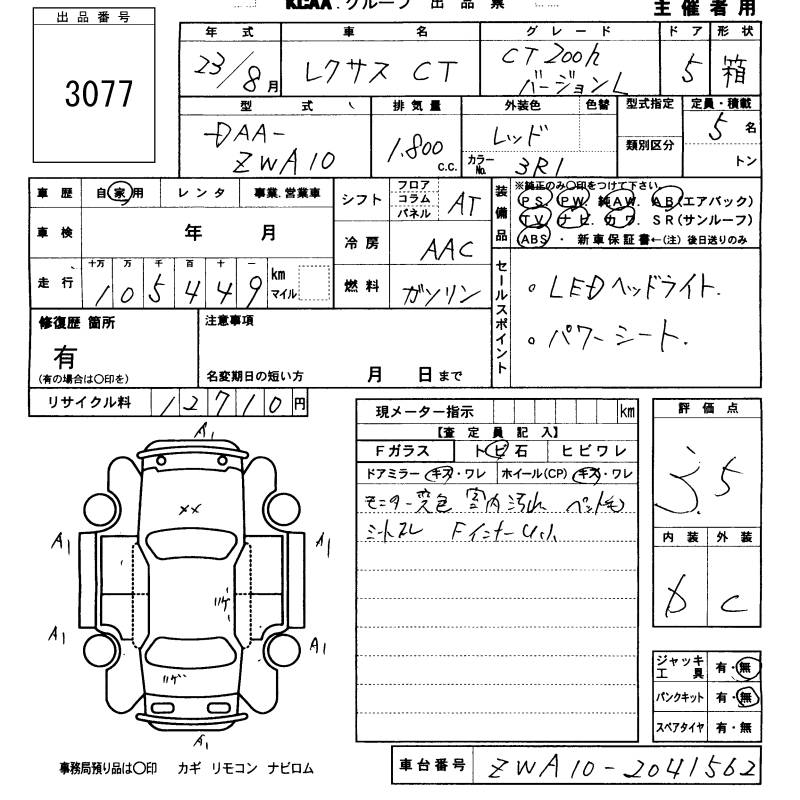 KCAA.グループ 出品票
主催者用
出品番号
3077
年式 車名 グレード ドア 形状
23/8月 レクサス CT CT200h バージョンL 5 箱
型式 排気量 外装色 色替 型式指定 定員・積載
DAA-ZWA10 1.800 C.C. レッド 類別区分 5名
カラーNo. 3R1 トン
車歴 自家用 レンタ 事業.営業車
シフト フロア コラム パネル AT
装備品 ※純正のみ○印をつけて下さい。
PS PW 純AW. AB(エアバック)
TV ナビ. カワ. SR(サンルーフ)
ABS ・ 新車保証書←(注)後日送りのみ
車検 年 月
冷房 AAC
走行 十万 万 千 百 十 一
105449 km マイル
燃料 ガソリン
セールスポイント
。LEDヘッドライト.
。パワーシート.
修復歴 箇所
有
(有の場合は○印を)
注意事項
名変期日の短い方 月 日まで
リサイクル料 12710円
現メーター指示 km
【査定員記入】
Fガラス トビ石 ヒビワレ
ドアミラー キズ・ワレ ホイール(CP) キズ・ワレ
モニター変色 室内汚れ ペット毛
シートスレ Fインナー
評価点
3.5
内装 外装
D C
A1
××
A1 A1
ツゲ
A1 A1
ツゲ
A1
ジャッキ 工具 有・無
パンクキット 有・無
スペアタイヤ 有・無
事務局預り品は○印 カギ リモコン ナビロム
車台番号 ZWA10-2041562